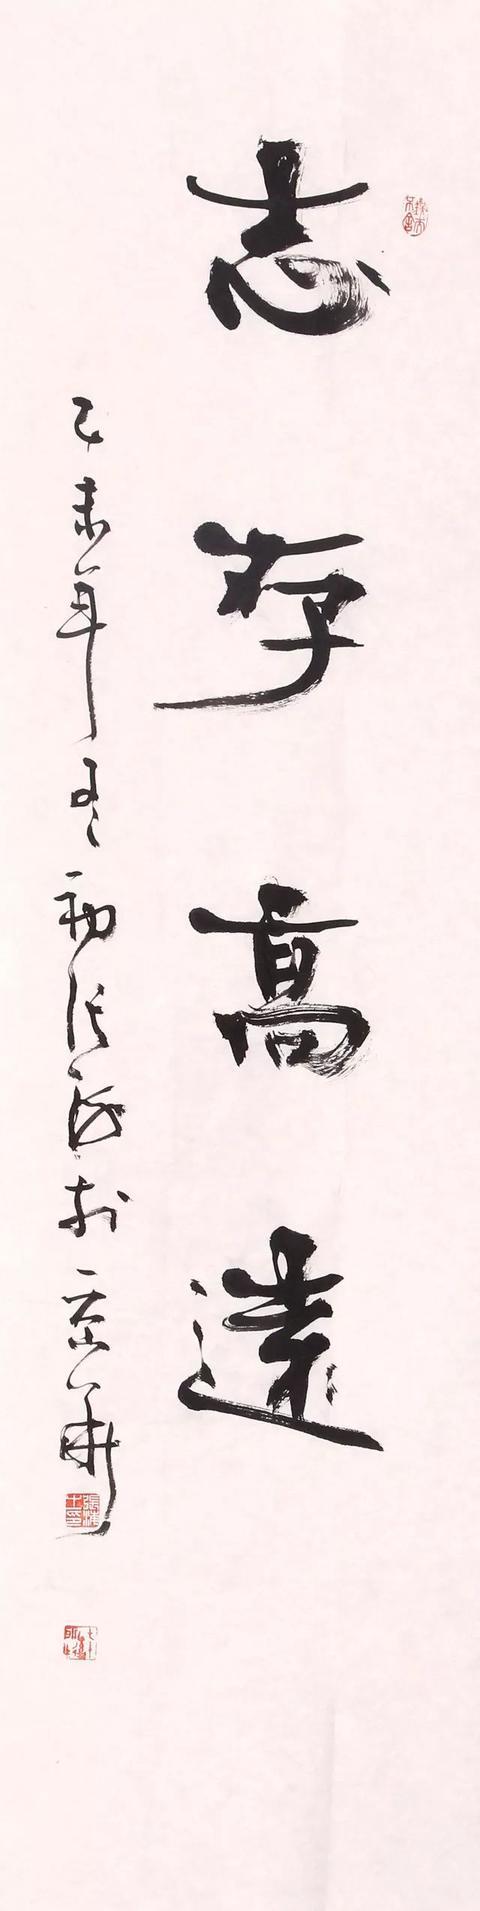 志存高遠
乙未年冬初張海於京華